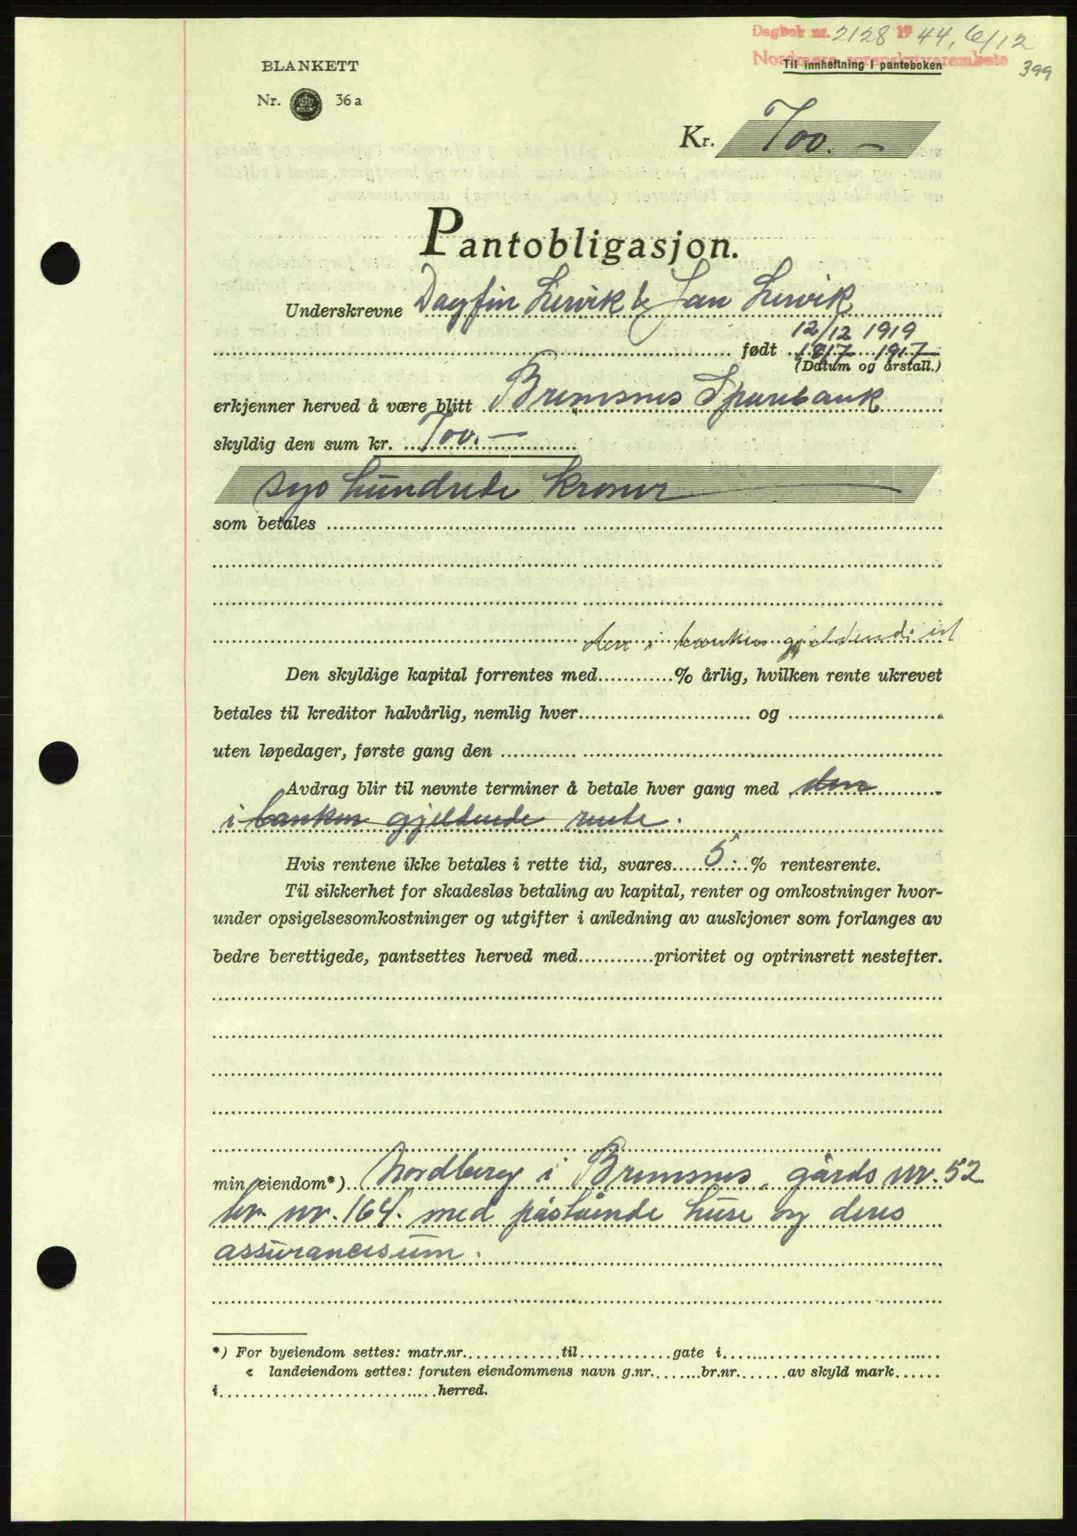 Dagbok nr. 2128 1944, 6/12
Nordmøre sorenskriverembete
Til innheftning i panteboken
399
BLANKETT
Nr. 36 a
Kr. 700.-
Pantobligasjon.
Underskrevne Dagfin Lervik & Jan Lervik
12/12 1919
født 18/7 1917
(Datum og årstall.)
erkjenner herved å være blitt Bremsnes Sparebank
skyldig den sum kr. 700.-
syv hundrede kroner
som betales
den i banken gjeldende
Den skyldige kapital forrentes med............% årlig, hvilken rente ukrevet
betales til kreditor halvårlig, nemlig hver............ og ............
uten løpedager, første gang den ............
Avdrag blir til nevnte terminer å betale hver gang med den
i banken gjeldende rente.
Hvis rentene ikke betales i rette tid, svares 5 % rentesrente.
Til sikkerhet for skadesløs betaling av kapital, renter og omkostninger hvor-
under opsigelsesomkostninger og utgifter i anledning av auskjoner som forlanges av
bedre berettigede, pantsettes herved med............prioritet og optrinsrett nestefter.
min eiendom*) Nordberg i Bremsnes, gårds nr. 52
br. nr. 164. med påstående huse og deres
assurancesum.
*) For byeiendom settes: matr.nr.............til............gate i............
« landeiendom settes: foruten eiendommens navn g.nr........br.nr.......av skyld mark......
i............herred.